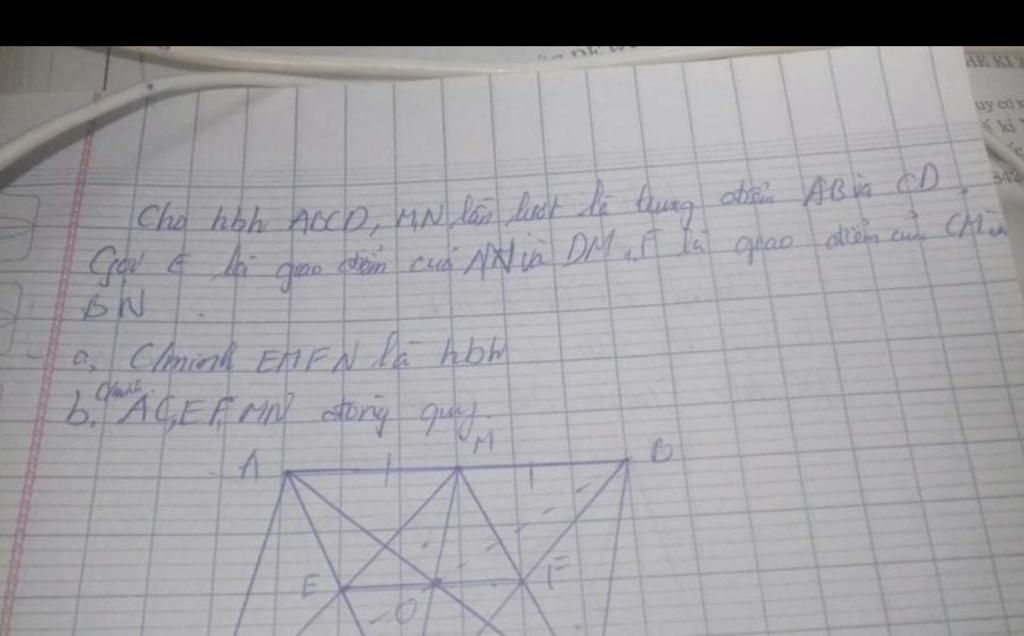 Cho hbh ABCD, M,N lần lượt là trung điểm AB và CD.
Gọi E là giao điểm của AN và DM, F là giao điểm của CM và
BN
a, C/minh EMFN là hbh
C/minh
b. AC, EF, MN đồng quy.
M
A
B
E
F
O
342